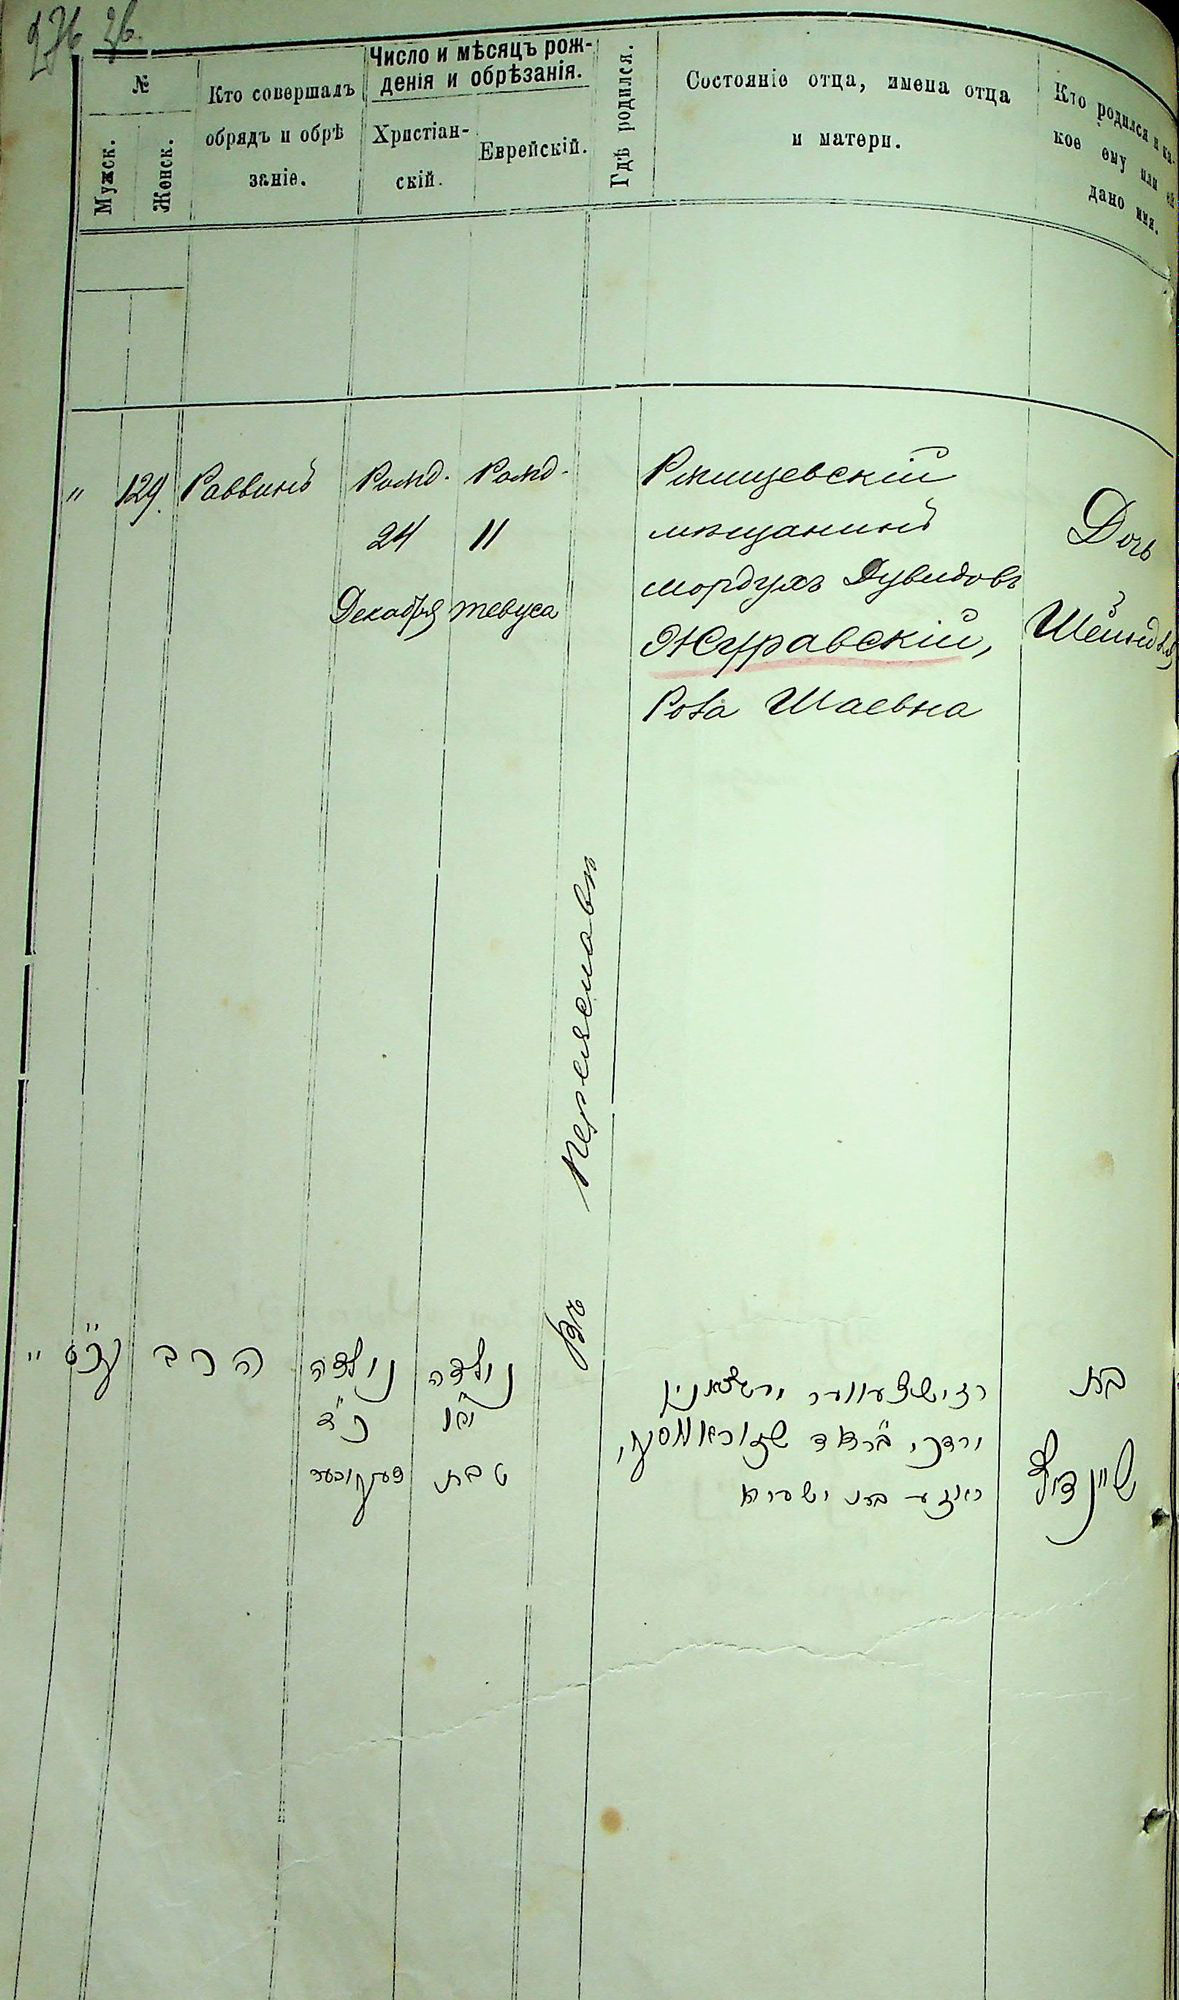 276 26.
№
Мужск.
Женск.
Кто совершалъ
обрядъ и обрѣ
заніе.
Число и мѣсяцъ рож-
денія и обрѣзанія.
Христіан-
скій.
Еврейскій.
Гдѣ родился.
Состояніе отца, имена отца
и матери.
Кто родился и ка-
кое ему или ей
дано имя.
" 129. Раввинъ
Рожд.
24
Декабря
Рожд.
11
тевуса
Въ Переяславѣ
Ржищевскій
мѣщанинъ
Мордухъ Дувидовъ
Журавскій,
Роза Шаевна
Дочь
Шейндля
"
הרב
נולדה
כ"ד
דעקאבער
נולדה
י"א
טבת
בת
שיינדיל